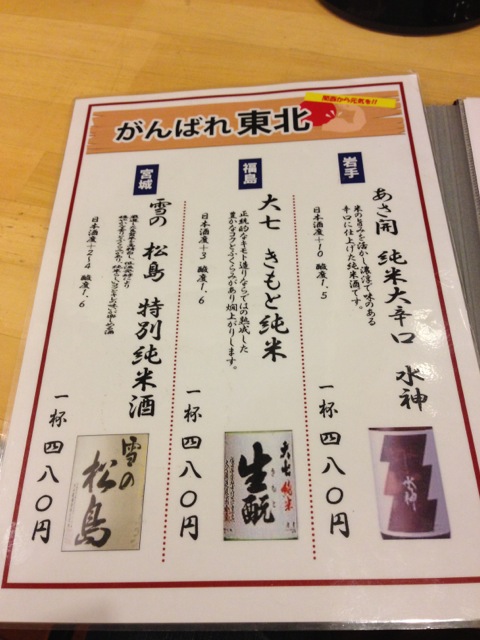 関西から元気を!!
がんばれ東北
岩手
あさ開 純米大辛口 水神
米の旨みを活かし濃淳で味のある
辛口に仕上げた純米酒です。
日本酒度+10 酸度1.5
一杯 四八〇円
水神
福島
大七 きもと純米
正統的なキモト造りならではの熟成した
豊かなコクとふくらみがあり燗上がりします。
日本酒度+3 酸度1.6
一杯 四八〇円
大七 純米
生酛
宮城
雪の松島 特別純米酒
日本酒度+2~4 酸度1.6
一杯 四八〇円
雪の
松島